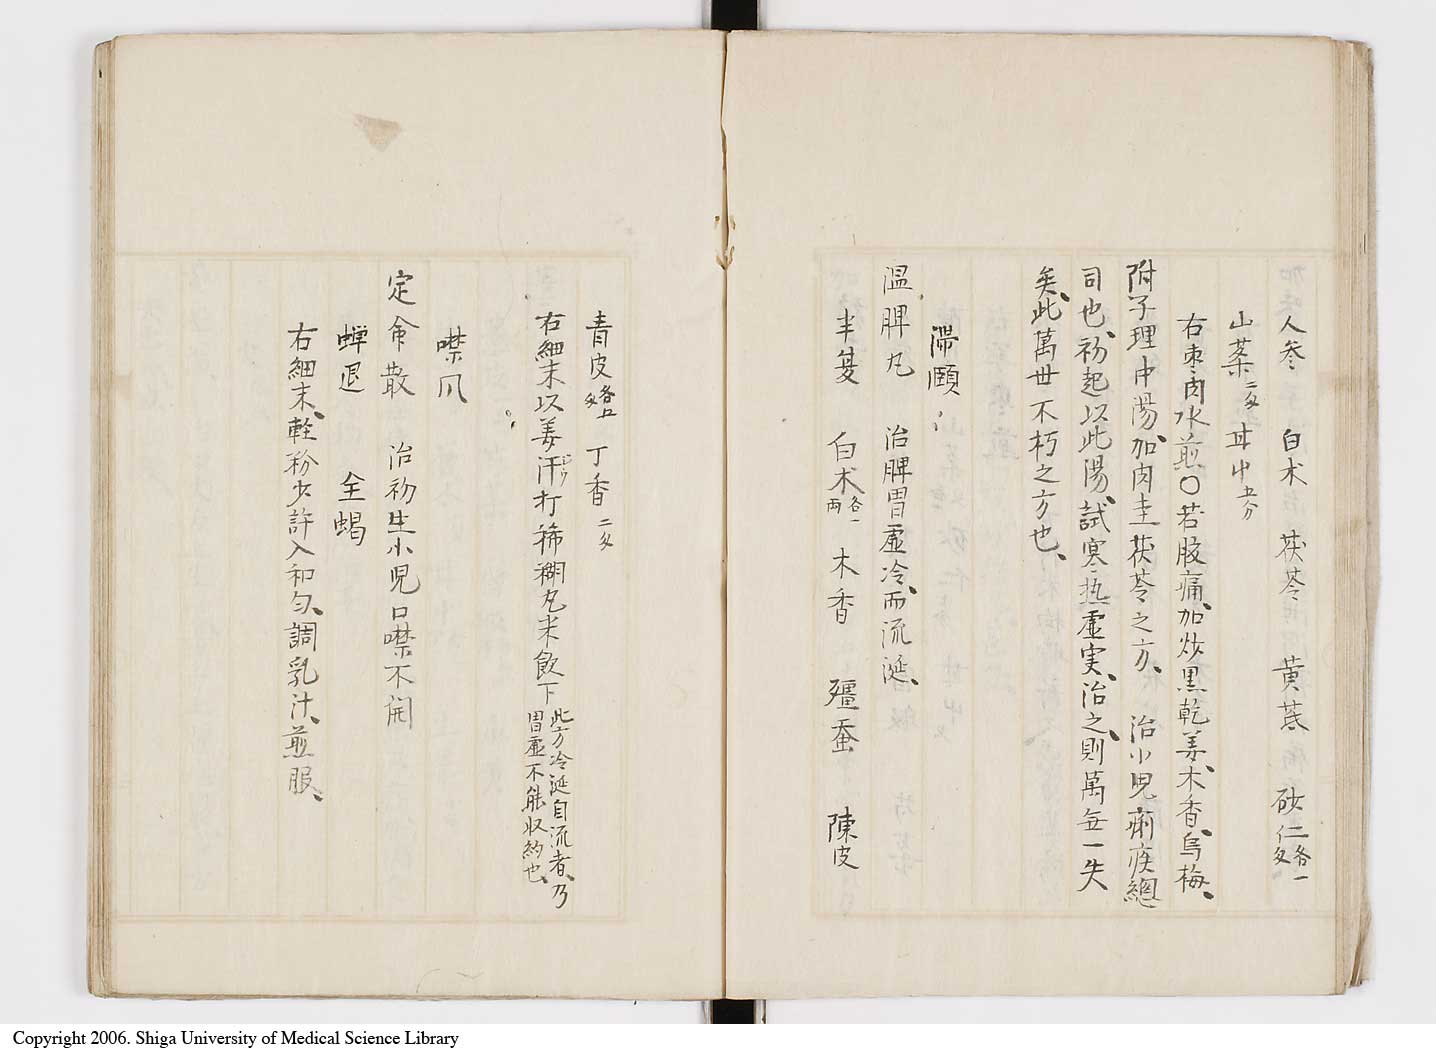 人参 白朮 茯苓 黄芪 砂仁各一匁
山薬二匁 甘中五分
右枣肉水煎〇若腹痛、加炒黒乾姜、木香、烏梅、
附子理中湯、加肉圭茯苓之方、 治小児痢疾總
司也、初起以此湯、試寒热虚実、治之、則萬毎一失
矣、此萬世不朽之方也、
滞頤
温脾丸 治脾胃虚冷、而流涎、
半夏 白朮各一両 木香 殭蚕 陳皮
青皮各五匁 丁香二匁
右細末以姜汁打稀糊丸米飲下此方冷涎自流者、乃
胃虚不能収約也、
噤风
定命散 治初生小児口噤不開
蝉退 全蝎
右細末、軽粉少許入和匀、調乳汁、煎服、
Copyright 2006. Shiga University of Medical Science Library